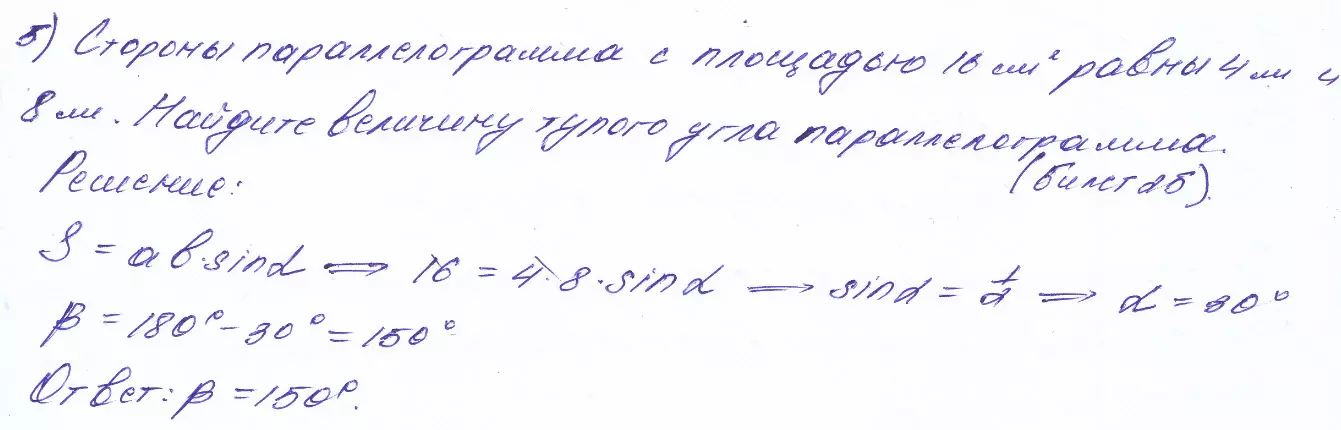 5) Стороны параллелограмма с площадью 16 см² равны 4 см и
8 см. Найдите величину тупого угла параллелограмма.
(билет 25).
Решение:
S = ab·sinα ⟹ 16 = 4·8·sinα ⟹ sinα = 1/2 ⟹ α = 30°
β = 180° - 30° = 150°
Ответ: β = 150°.